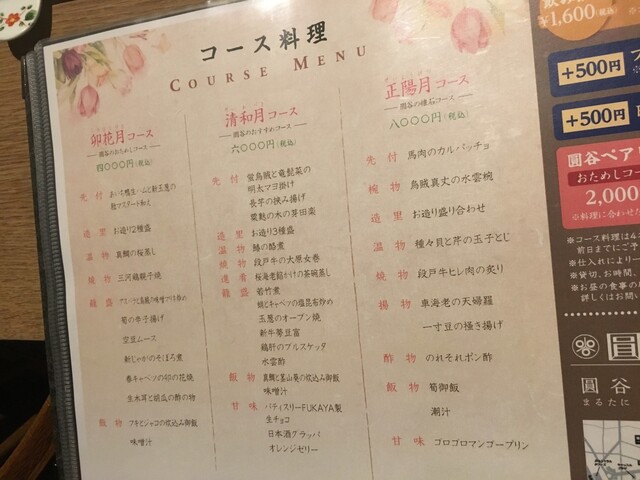 コース料理
COURSE MENU
卯花月コース
圓谷のおためしコース
四〇〇〇円(税込)
先付 あいち鴨生ハムと新玉葱の
粒マスタード和え
造里 お造り2種盛
温物 真鯛の桜蒸し
焼物 三河鶏親子焼
籠盛
筍の辛子揚げ
空豆ムース
新じゃがのそぼろ煮
春キャベツの卯の花焼
生木耳と胡瓜の酢の物
飯物 フキとジャコの炊込み御飯
味噌汁
清和月コース
圓谷のおすすめコース
六〇〇〇円(税込)
先付 蛍烏賊と竜髭菜の
明太マヨ掛け
長芋の挟み揚げ
蝦魁の木の芽田楽
造里 お造り3種盛
温物 鰆の酪煮
焼物 段戸牛の大原女巻
進肴 桜海老餡かけの茶碗蒸し
籠盛 若竹煮
蛸とキャベツの塩昆布炒め
玉葱のオーブン焼
新牛蒡豆富
鶏肝のブルスケッタ
水雲酢
飯物 真鯛と葉山葵の炊込み御飯
味噌汁
甘味 パティスリーFUKAYA製
生チョコ
日本酒グラッパ
オレンジゼリー
正陽月コース
圓谷の懐石コース
八〇〇〇円(税込)
先付 馬肉のカルパッチョ
椀物 烏賊真丈の水雲椀
造里 お造り盛り合わせ
温物 種々貝と芹の玉子とじ
焼物 段戸牛ヒレ肉の炙り
揚物 車海老の天婦羅
一寸豆の掻き揚げ
酢物 のれそれポン酢
飯物 筍御飯
潮汁
甘味 ゴロゴロマンゴープリン
¥1,600 税込
+500円
+500円
圓谷ペア
おためしコー
2,000
※料理に合わせた
※コース料理は4名
前日までにご予
※仕入れにより一
※貸切、お時間、
※お昼の食事の
詳しくはお問い
圓
圓谷
まるたに